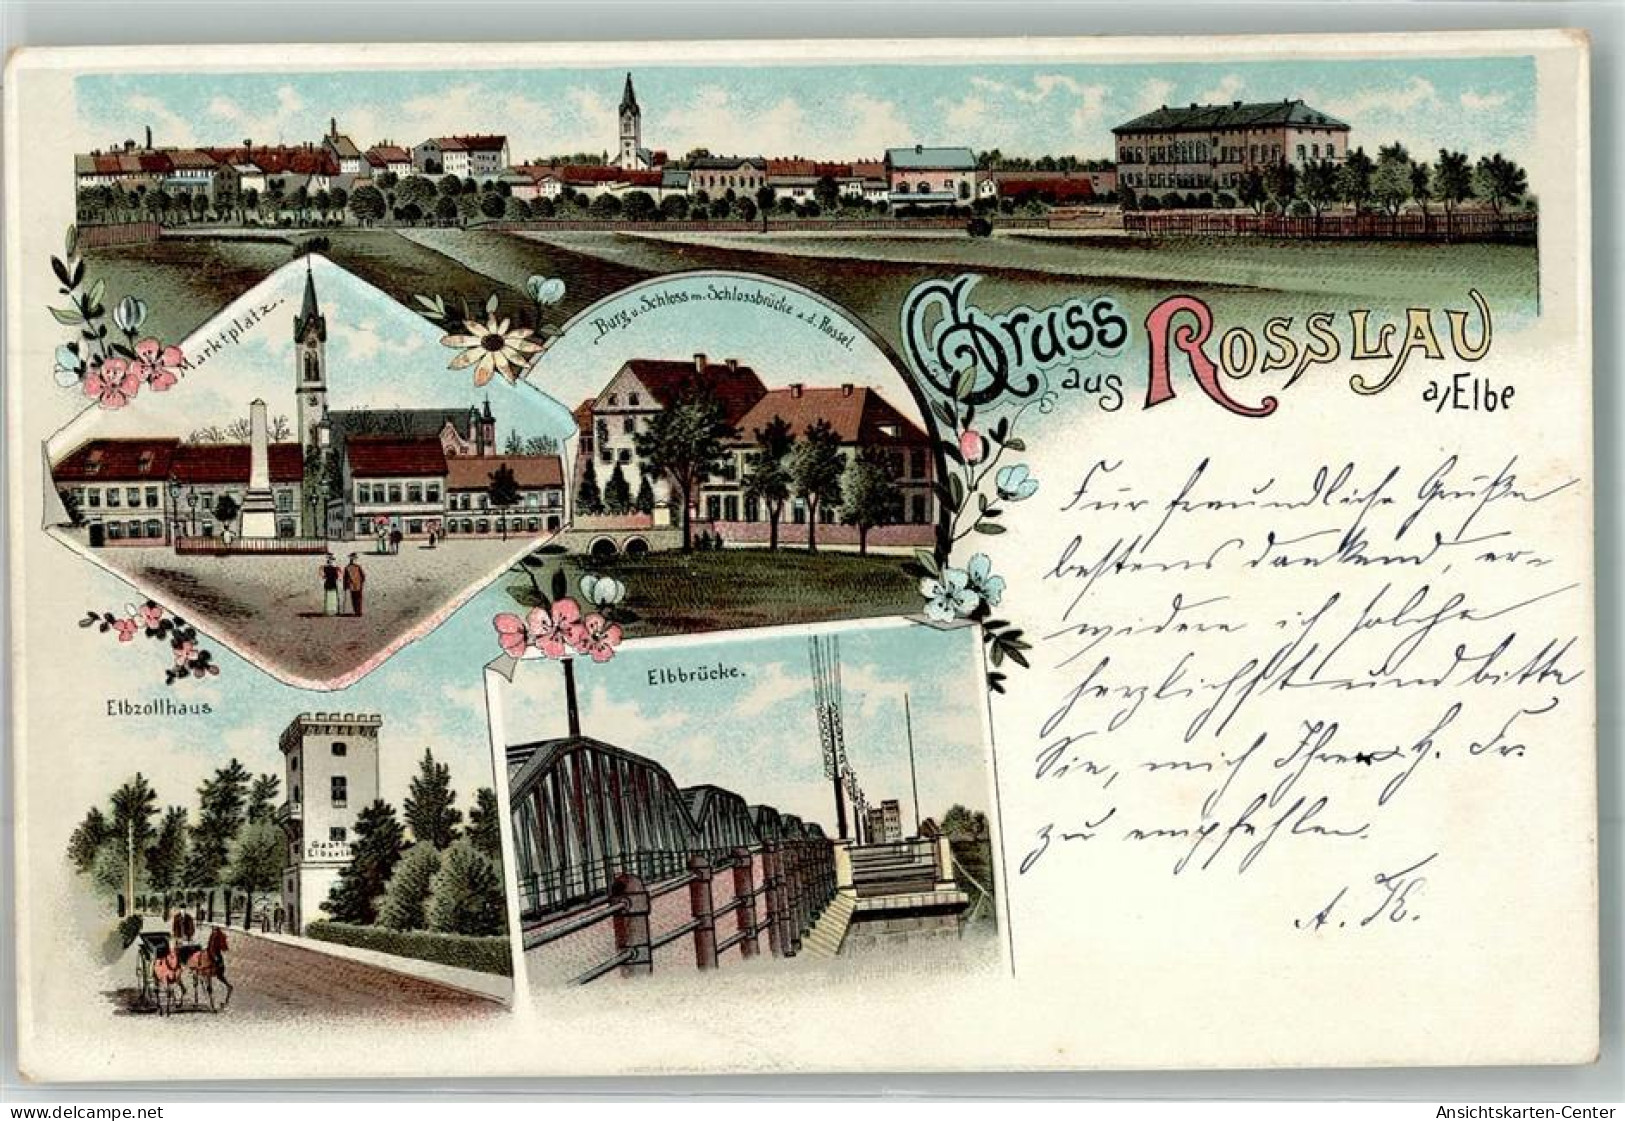 Gruss
aus
ROSSLAU
a/Elbe
Marktplatz.
Burg u. Schloss m. Schlossbrücke a. d. Rossel.
Elbzollhaus
Elbbrücke.
Für freundliche Grüße
bestens dankend, er-
widere ich solche
herzlichst und bitte
Sie, mich Ihrer H. Fr.
zu empfehlen.
A. K.
www.delcampe.net
Ansichtskarten-Center